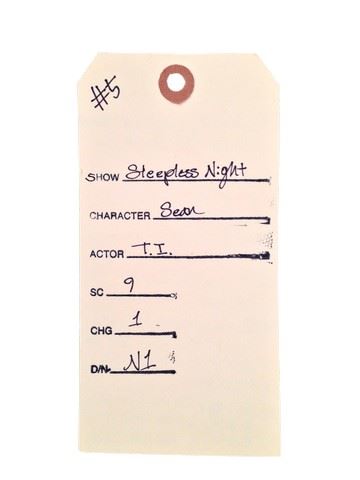 #5
SHOW Sleepless Night
CHARACTER Sean
ACTOR T.I.
SC 9
CHG 1
D/N N1